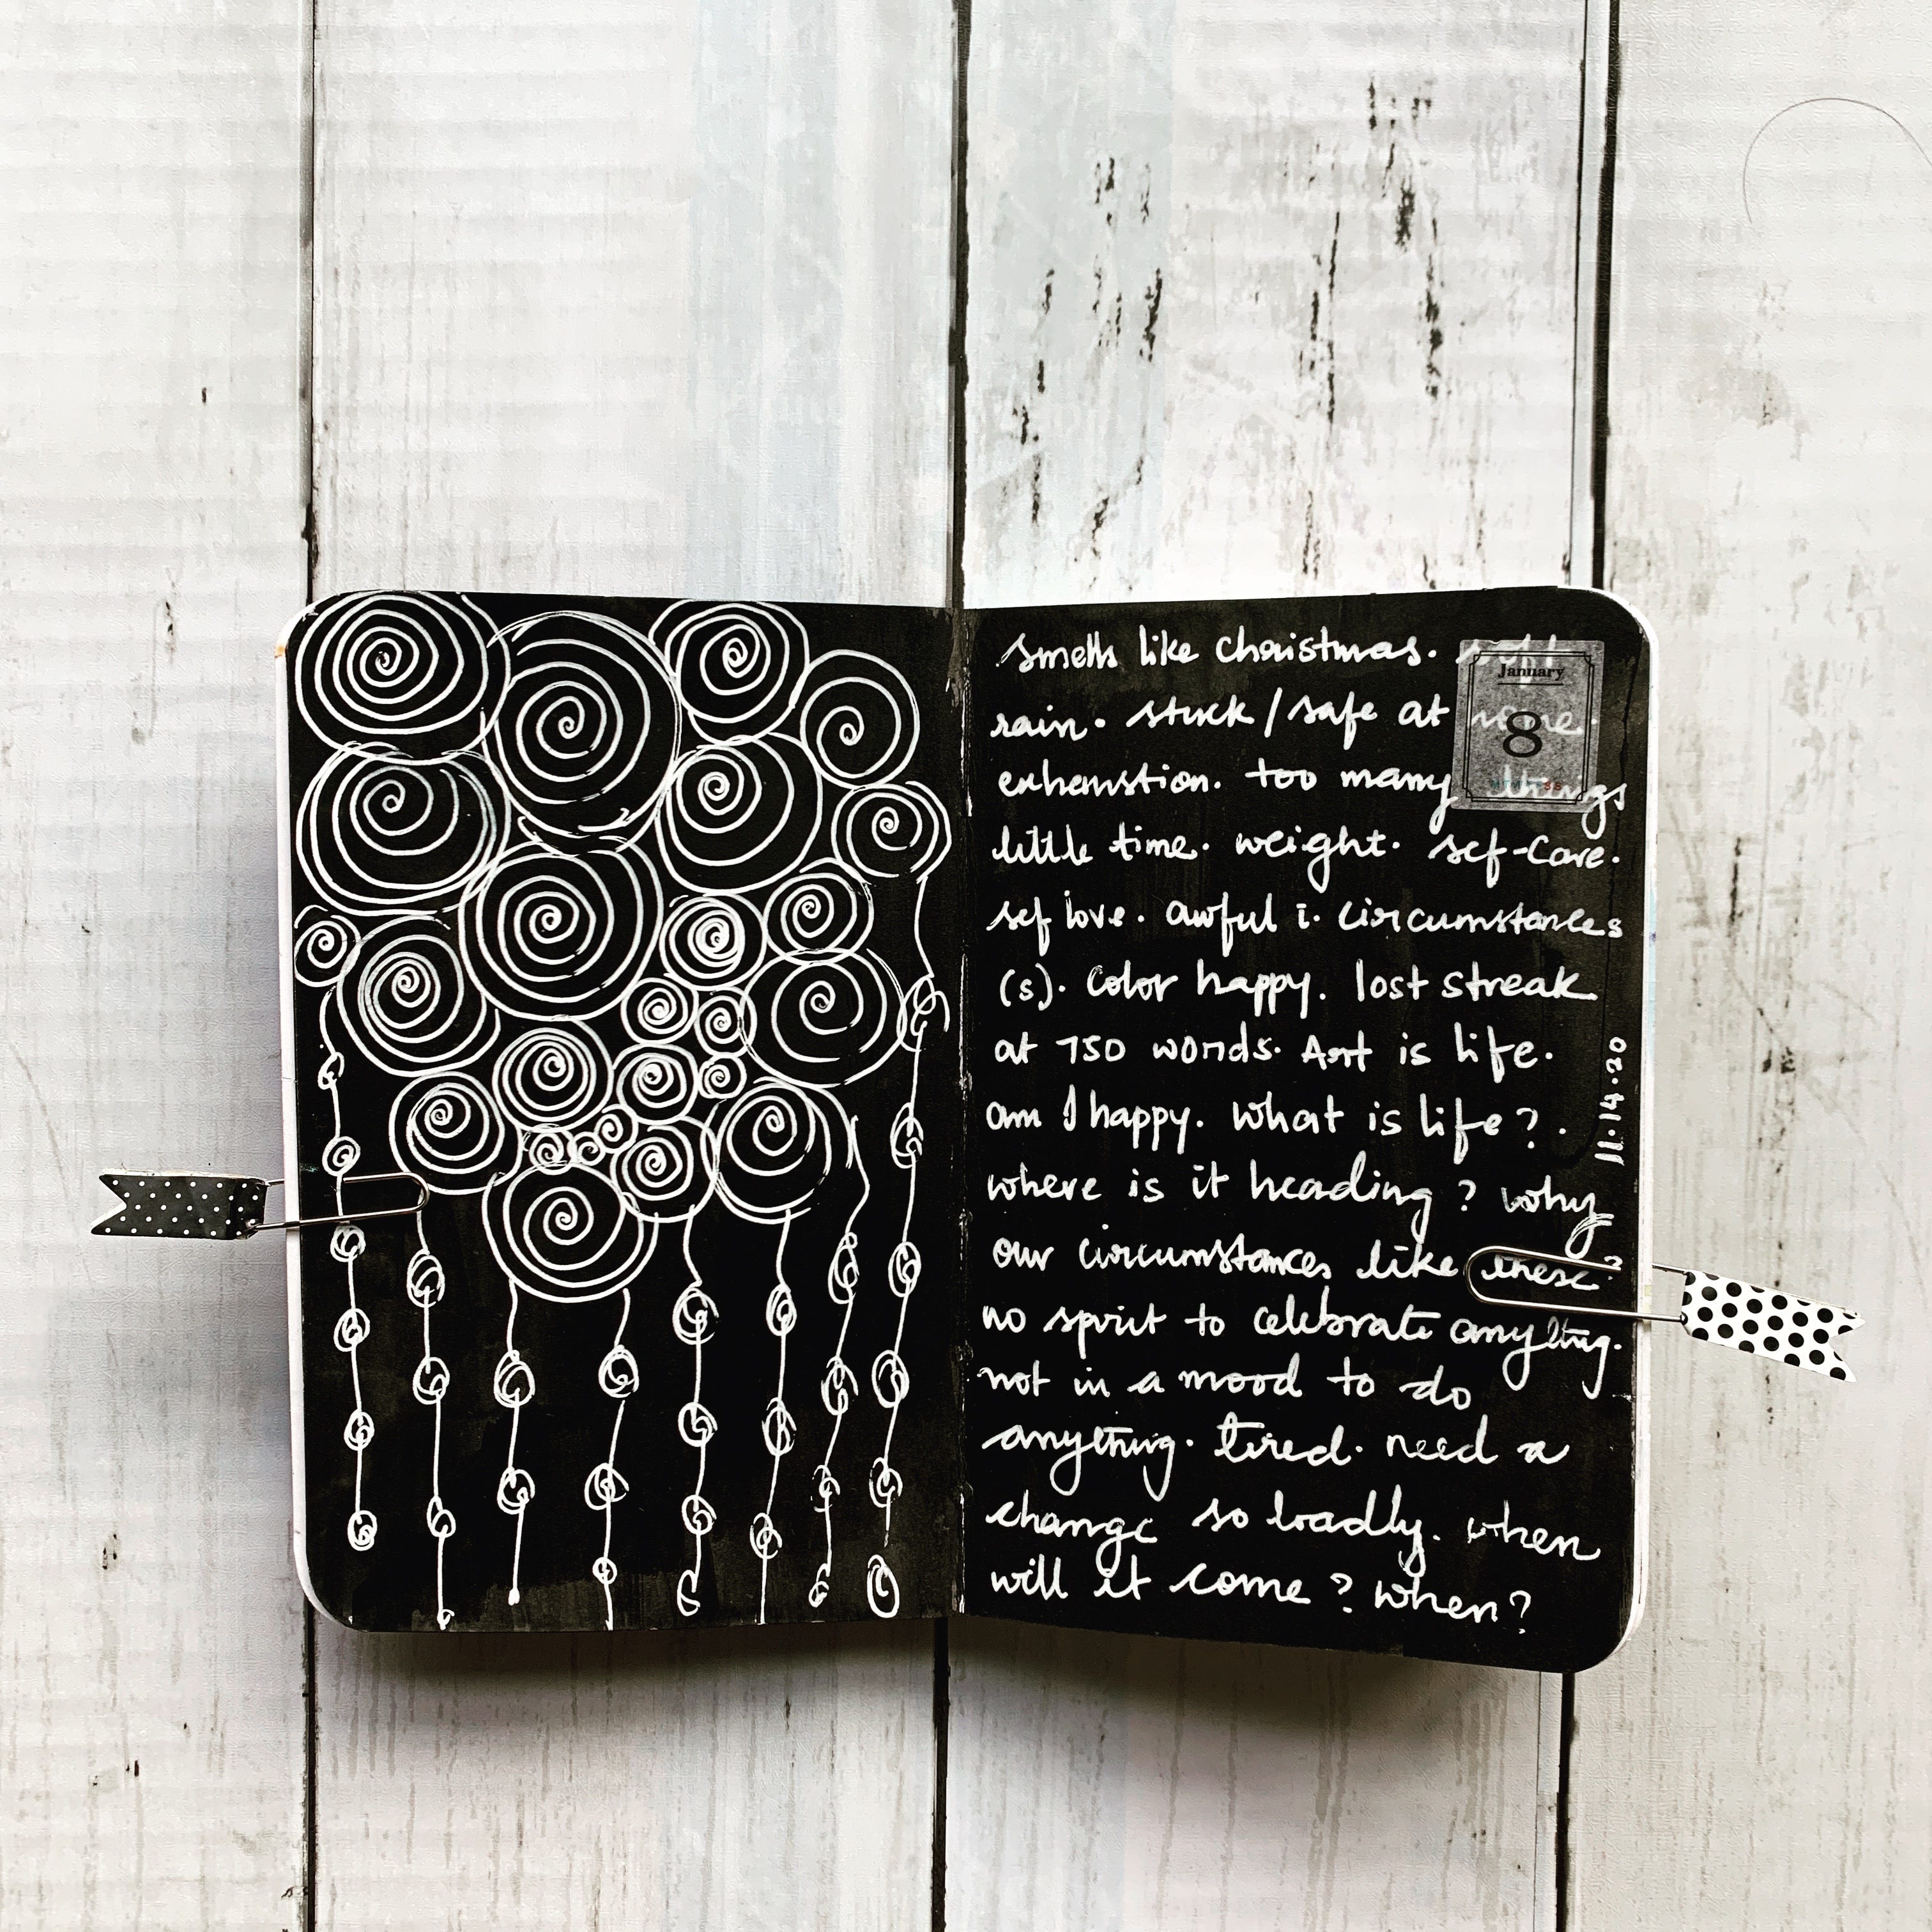 smells like christmas. soft
rain. stuck / safe at home.
exhaustion. too many things
little time. weight. self-care.
self love. awful i. circumstances
(s). color happy. lost streak
at 750 words. Art is life.
am I happy. What is life?.
where is it heading? why
our circumstances like these?
no spirit to celebrate anything.
not in a mood to do
anything. tired. need a
change so badly. when
will it come? when?
January
8
11.14.20